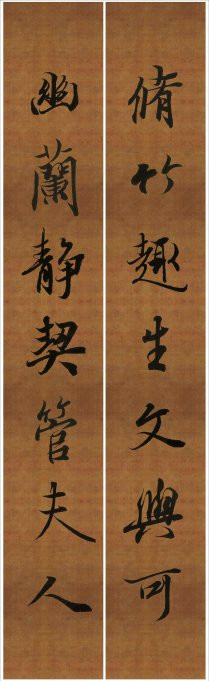 脩竹趣生文與可
幽蘭静契管夫人